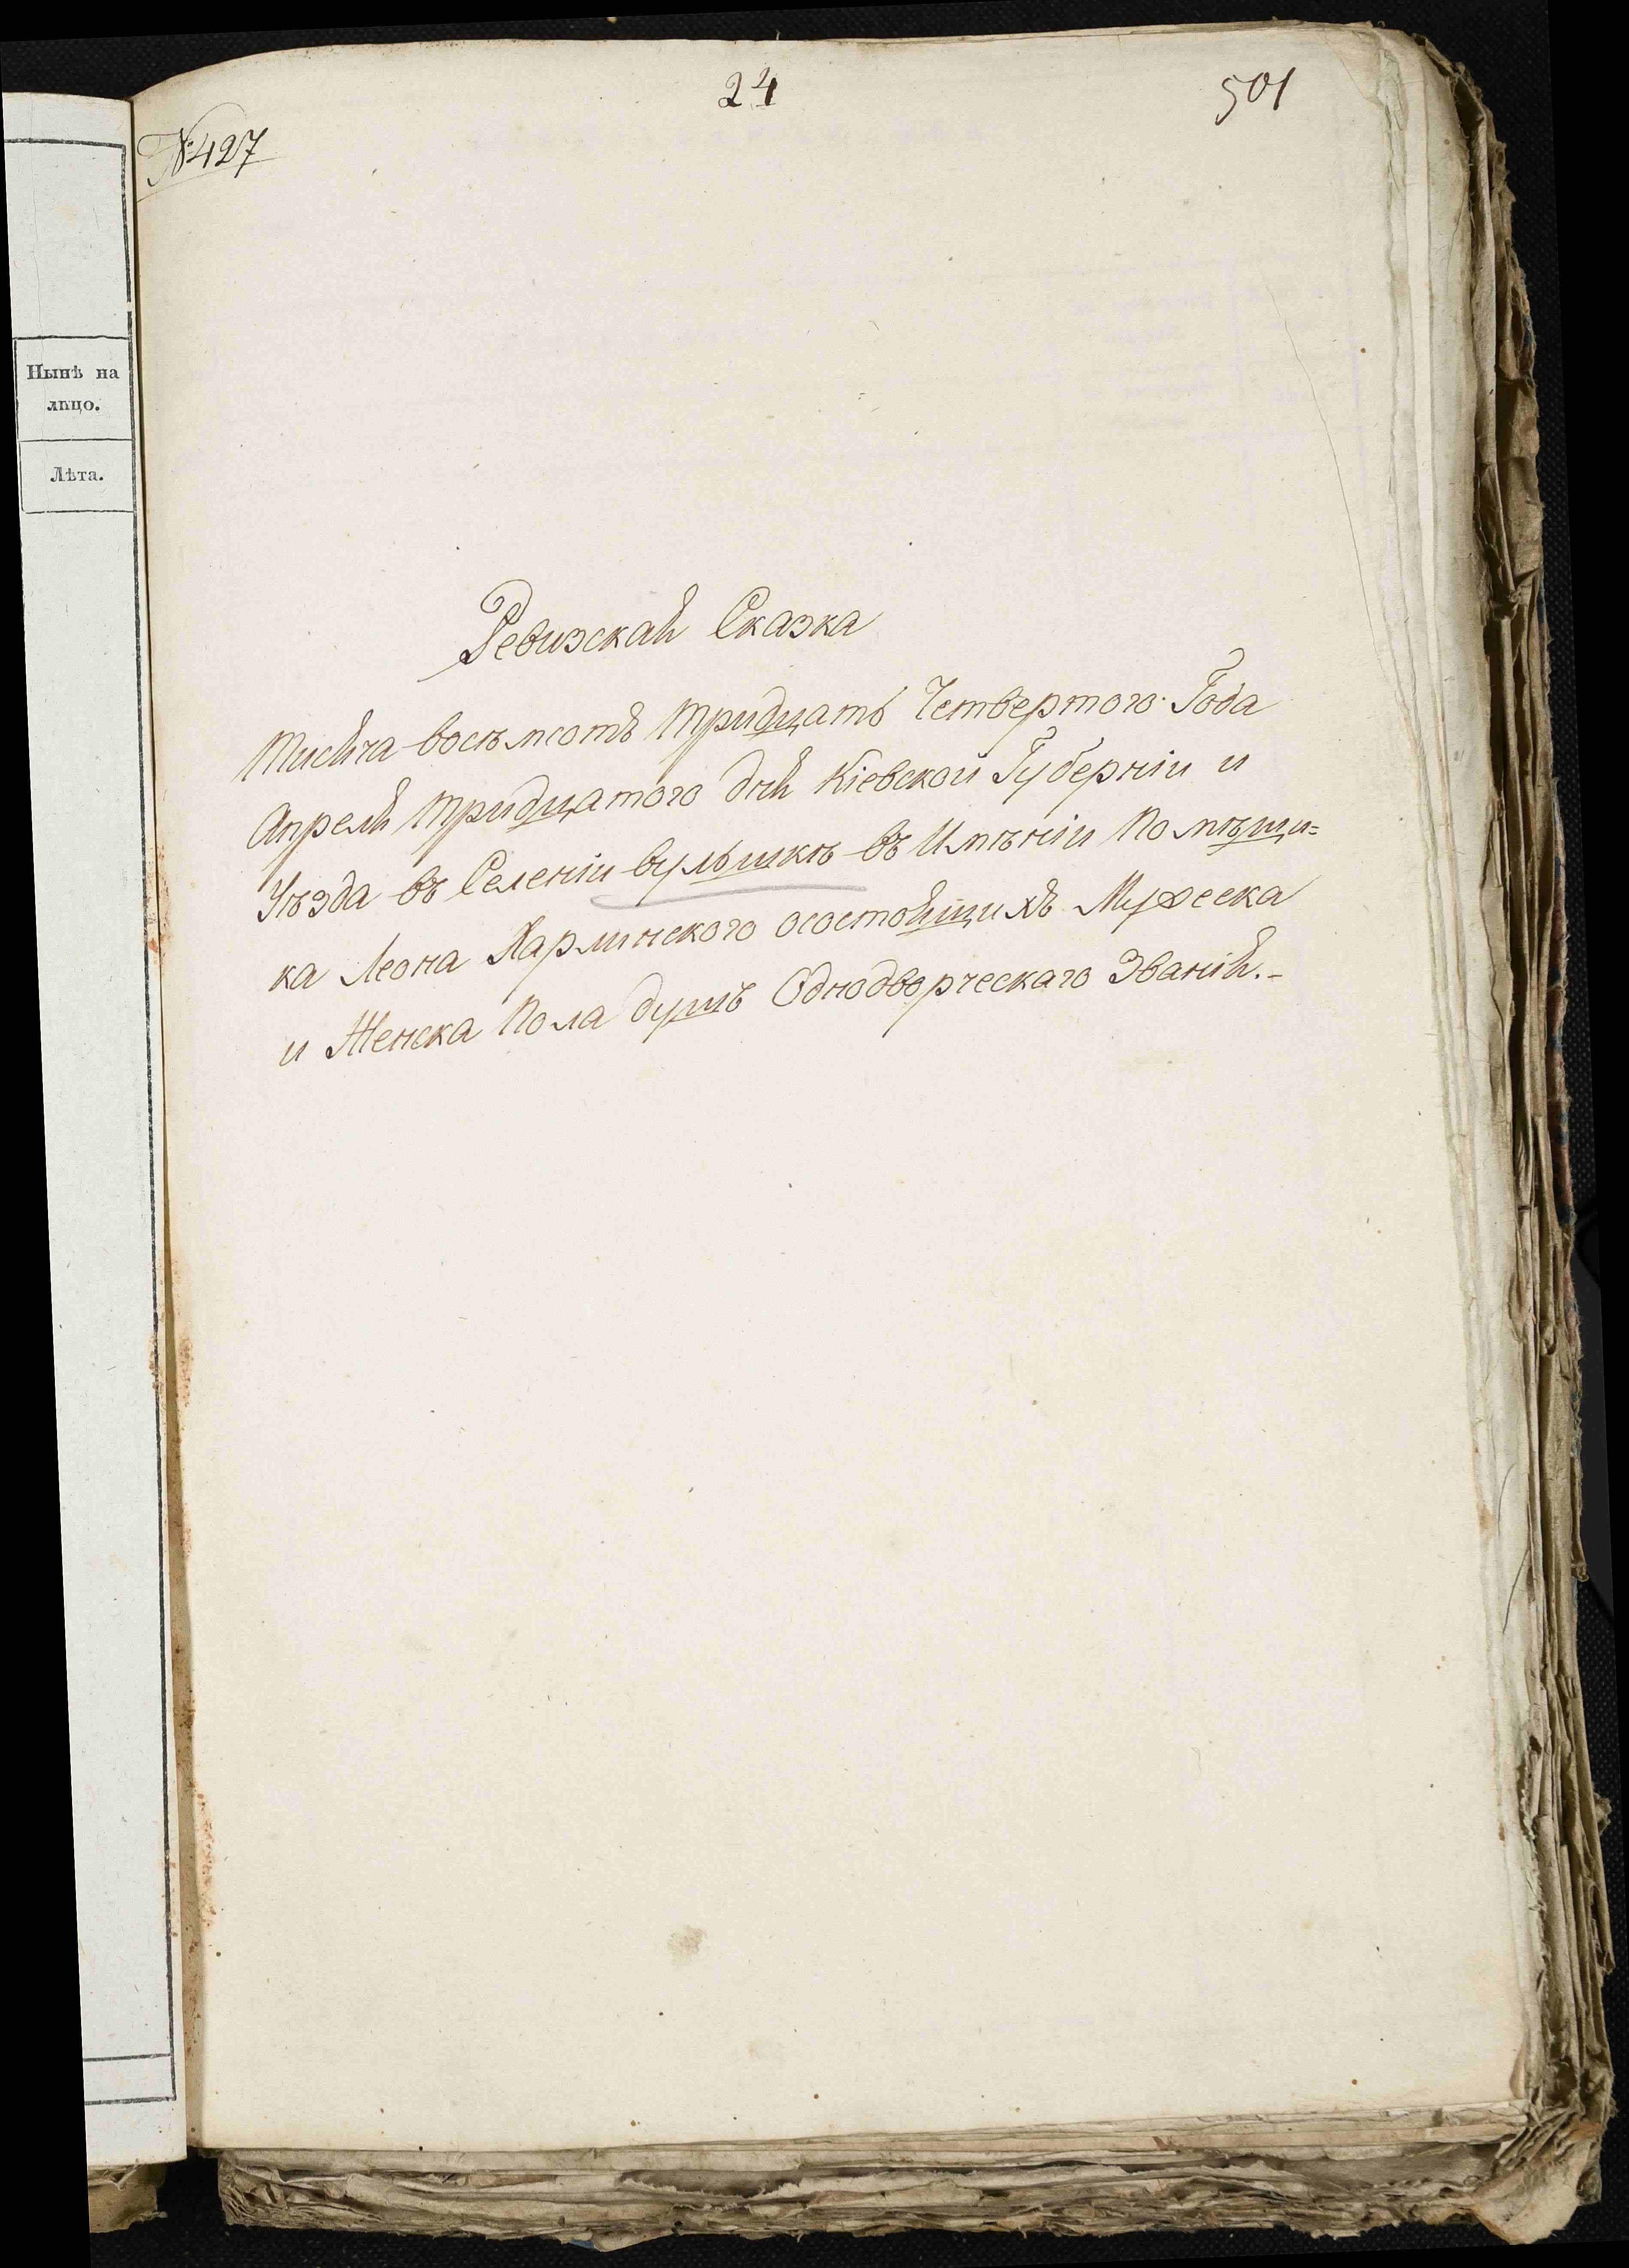 24
501
№427
Нынѣ на
лицо.
Лѣта.
Ревизская Сказка
Тисяча восѣмсотъ тридцать Четвертого Года
Апреля тридцатого дня Кіевской Губерніи и
Уѣзда въ Селеніи вульшкѣ въ Имѣніи Помѣщи=
ка Леона Харлинского осостоящихъ Мужеска
и Женска Пола душъ Однодворческаго Званія.-